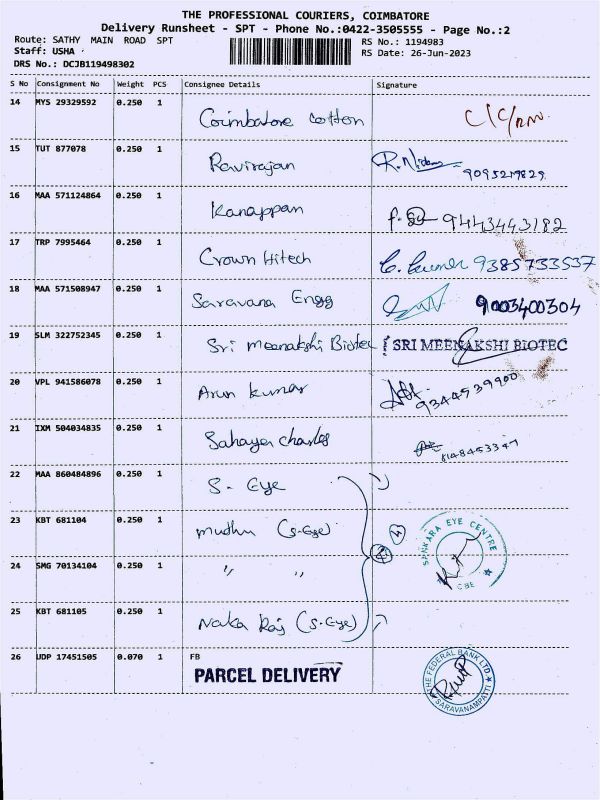 THE PROFESSIONAL COURIERS, COIMBATORE
Delivery Runsheet - SPT - Phone No.:0422-3505555 - Page No.:2
Route: SATHY MAIN ROAD SPT
RS No.: 1194983
Staff: USHA
RS Date: 26-Jun-2023
DRS No.: DCJB119498302
S No Consignment No Weight PCS Consignee Details Signature
14 MYS 29329592 0.250 1 Coimbatore Cotton
15 TUT 877078 0.250 1 Ravirajan
16 MAA 571124864 0.250 1 Kanappan 9443443182
17 TRP 7995464 0.250 1 Crown Hitech 9385733537
18 MAA 571508947 0.250 1 Saravana Engg 9003400304
19 SLM 322752345 0.250 1 Sri Meenakshi Biotec SRI MEENAKSHI BIOTEC
20 VPL 941586078 0.250 1 Arun Kumar 9344539900
21 IXM 504034835 0.250 1 Sahaya Charles
22 MAA 860484896 0.250 1 S- Eye
23 KBT 681104 0.250 1 Muthu (S-Eye) 4
24 SMG 70134104 0.250 1 " "
SANKARA EYE CENTRE
CBE
25 KBT 681105 0.250 1 Raj (S-Eye)
26 UDP 17451505 0.070 1 FB
PARCEL DELIVERY
THE FEDERAL BANK LTD
SARAVANAMPATTI